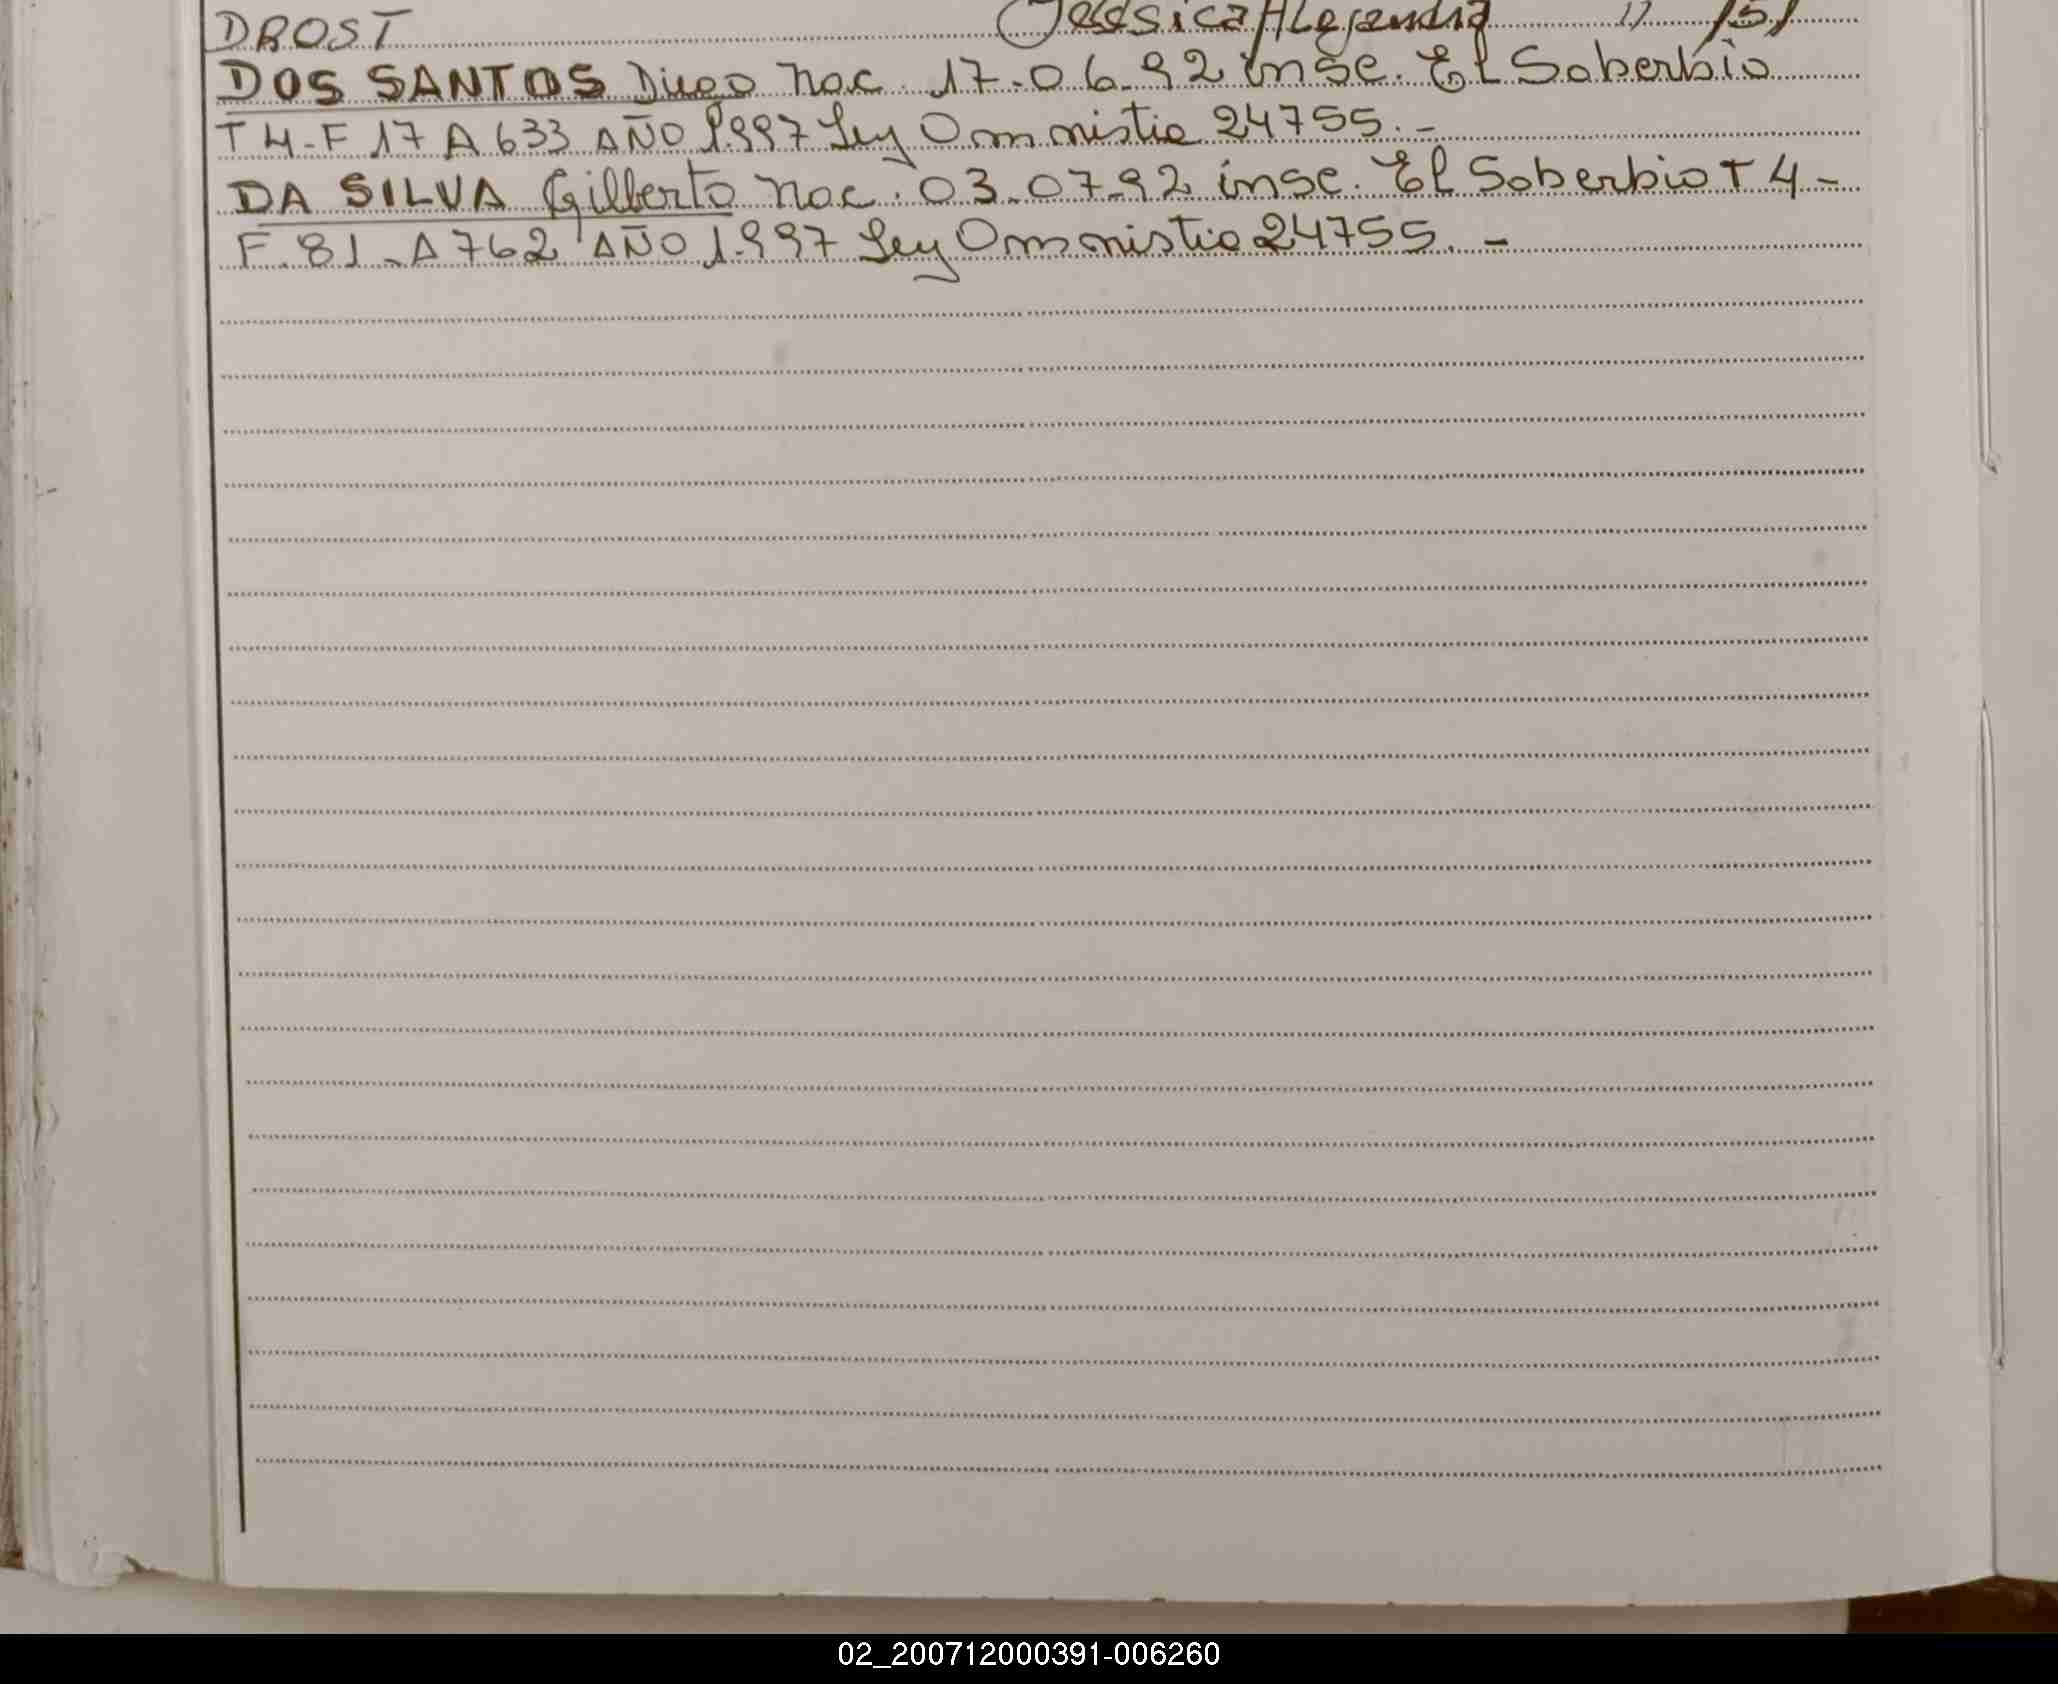 DROST Jessica Alejandra " 151
DOS SANTOS Diego nac. 17-06-92 insc. El Soberbio
T 4-F 17 A 633 AÑO 1.997 Ley Omnistia 24755.-
DA SILVA Gilberto nac. 03-07-92 insc. El Soberbio T 4-
F. 81-A 762 AÑO 1.997 Ley Omnistia 24755.-
02_200712000391-006260